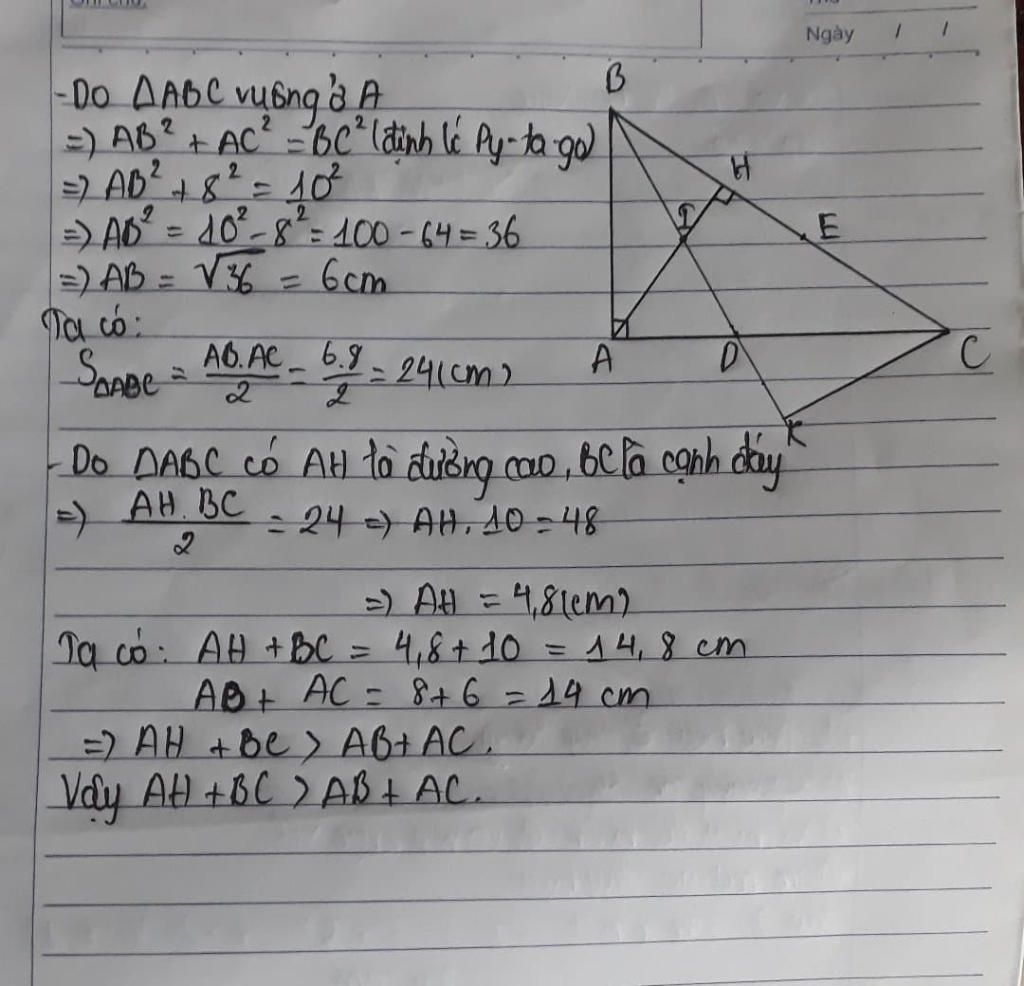 Ngày / /
- Do ΔABC vuông ở A
=> AB² + AC² = BC² (định lí Py-ta-go)
=> AB² + 8² = 10²
=> AB² = 10² - 8² = 100 - 64 = 36
=> AB = √36 = 6cm
Ta có:
S_ΔABC = AB.AC/2 = 6.8/2 = 24(cm)
- Do ΔABC có AH là đường cao, BC là cạnh đáy
=> AH.BC/2 = 24 => AH.10 = 48
=> AH = 4,8(cm)
Ta có: AH + BC = 4,8 + 10 = 14,8 cm
AB + AC = 8 + 6 = 14 cm
=> AH + BC > AB + AC.
Vậy AH + BC > AB + AC.
B
H
I
E
A
D
C
K